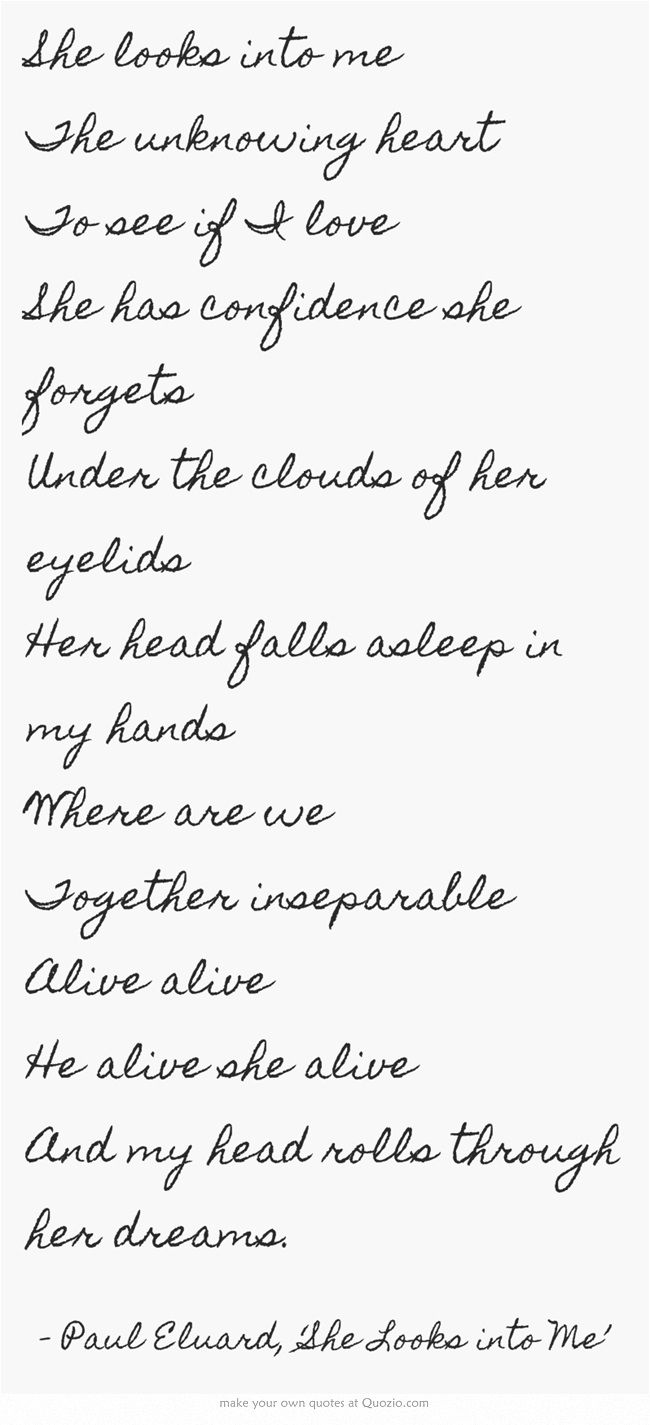 She looks into me
The unknowing heart
To see if I love
She has confidence she
forgets
Under the clouds of her
eyelids
Her head falls asleep in
my hands
Where are we
Together inseparable
Alive alive
He alive she alive
And my head rolls through
her dreams.
- Paul Eluard, 'She Looks into Me'
make your own quotes at Quozio.com